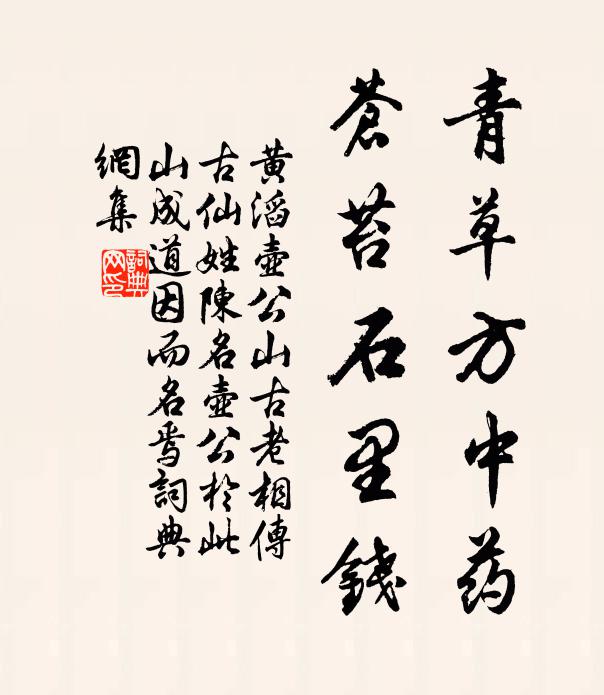 青草方中药
苍苔石里錢
黄滔壺公山古老相傳
古仙姓陳名壺公於此
山成道因而名焉詞典
網集
詞典
网印